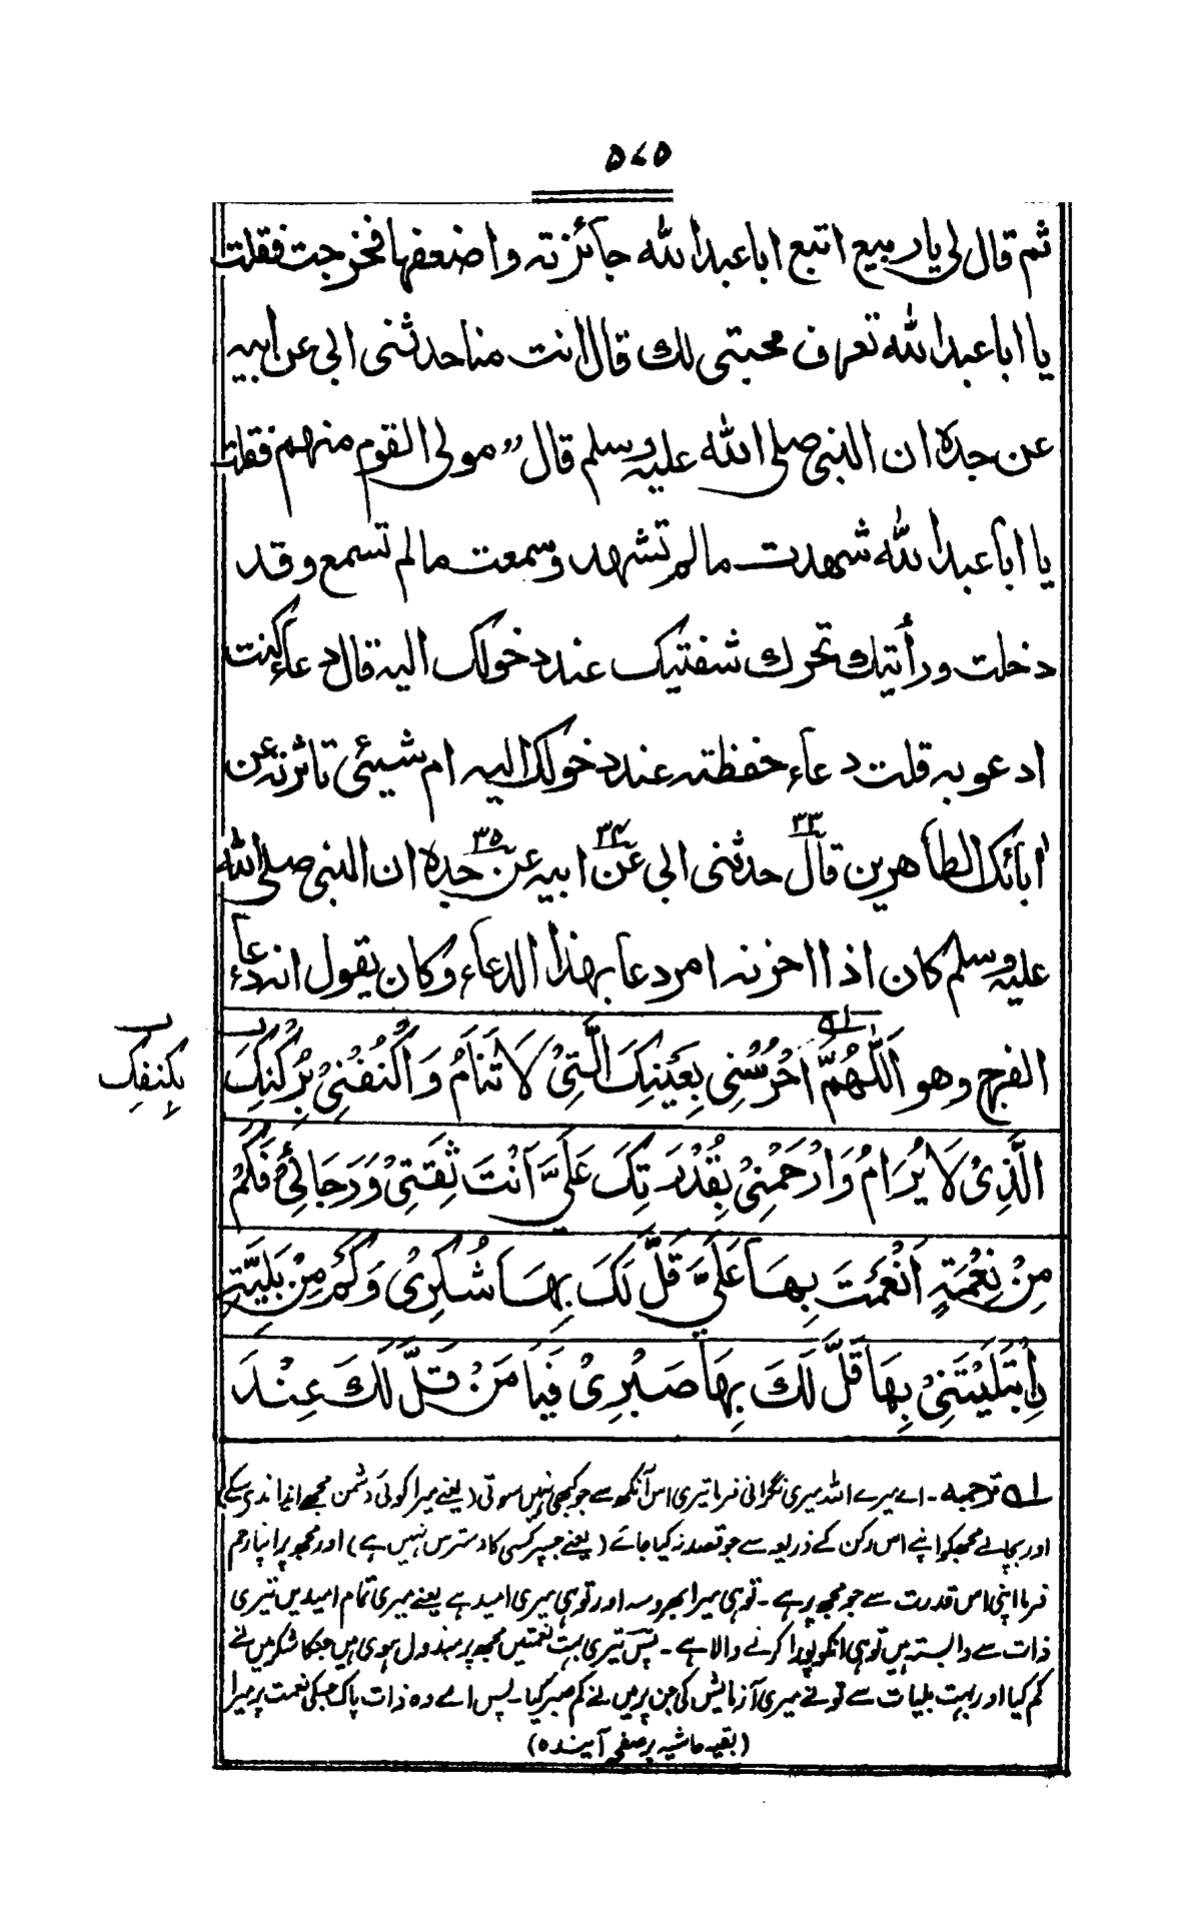 ۵۷۵
ثم قال لی یا ربیع اتبع ابا عبدالله جآئزته واضعفها فخرجت فقلت
یا ابا عبدالله تعرف محبتی لك قال انت منا حدثنی ابی عن ابیه
عن جده ان النبی صلی الله علیه وسلم قال ” مولی القوم منهم فقلت
یا ابا عبدالله شهدت مالم تشهد وسمعت مالم تسمع وقد
دخلت ورأیتك تحرك شفتیك عند دخولك الیه قال دعاء کنت
ادعو به قلت دعاء حفظته عند دخولك الیه ام شیئی تاثرته عن
اٰبائك الطاهرین قال۳۳ حدثنی ابی عن۳۴ ابیه عن۳۵ جده ان النبی صلی الله
علیه وسلم کان اذا احزنه امر دعا بهذا الدعاء وکان یقول انه دعاء
الفرج وهو اَللّٰهُمَّ له احْرُسْنِی بِعَیْنِكَ الَّتِیْ لَا تَنَامُ وَاَکْنُفْنِیْ بِرُکْنِكَ ب
ب بِکَنَفِكَ
الَّذِیْ لَا یُرَامُ وَارْحَمْنِیْ بِقُدْرَتِكَ عَلَیَّ اَنْتَ ثِقَتِیْ وَرَجَائِیْ فَکَمْ
مِنْ نِعْمَةٍ اَنْعَمْتَ بِهَا عَلَیَّ قَلَّ لَكَ بِهَا شُکْرِیْ وَکَمْ مِنْ بَلِیَّةٍ
اِبْتَلَیْتَنِیْ بِهَا قَلَّ لَكَ بِهَا صَبْرِیْ فَیَا مَنْ قَلَّ لَكَ عِنْدَ
له ترجمه ۔ اے میرے اللہ میری نگرانی فرما تیری اس آنکھ سے جو کبھی نہیں سوتی (یعنے میرا کوئی دشمن مجھے ایذا نہ دی سکے)
اور بچالے مجھکو اپنے اس رکن کے ذریعہ سے جو قصد نہ کیا جائے (یعنے جسپر کسی کا دسترس نہیں ہے) اور مجھپر اپنا رحم
فرما اپنی اس قدرت سے جو مجھ پر ہے ۔ تو ہی میرا بھروسہ اور تو ہی میری امید ہے یعنے میری تمام امیدیں تیری
ذات سے وابستہ ہیں تو ہی انکو پورا کرنے والا ہے ۔ پس تیری بہت نعمتیں مجھ پر مبذول ہوی ہیں جنکا شکر میں نے
کم کیا اور بہت بلیات سے تو نے میری آزمایش کی جن پر میں نے کم صبر کیا ۔ پس اے وہ ذات پاک جسکی نعمت پر میرا
(بقیہ حاشیہ بر صفحہ آیندہ)